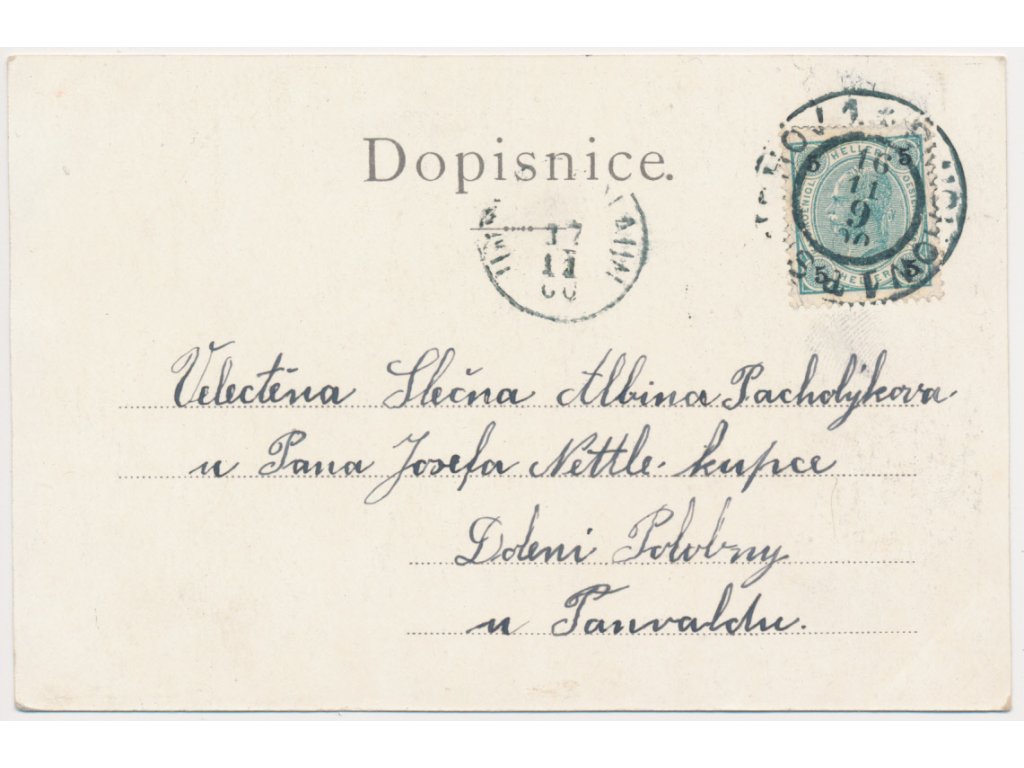 Dopisnice.
5 HELLER 5
16
11
9
00
5 HELLER 5
17
11
00
Velectěna Slečna Albina Pacholýkova.
u Pana Josefa Nettle. kupce
Doleni Polobny
u Tanvaldu.